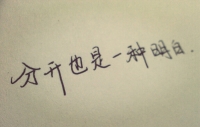 分开也是一种明白.